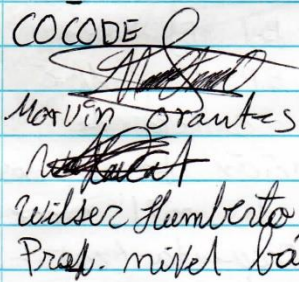 COCODE
Marvin orantes
Wilser Humberto
Prof. nivel bá